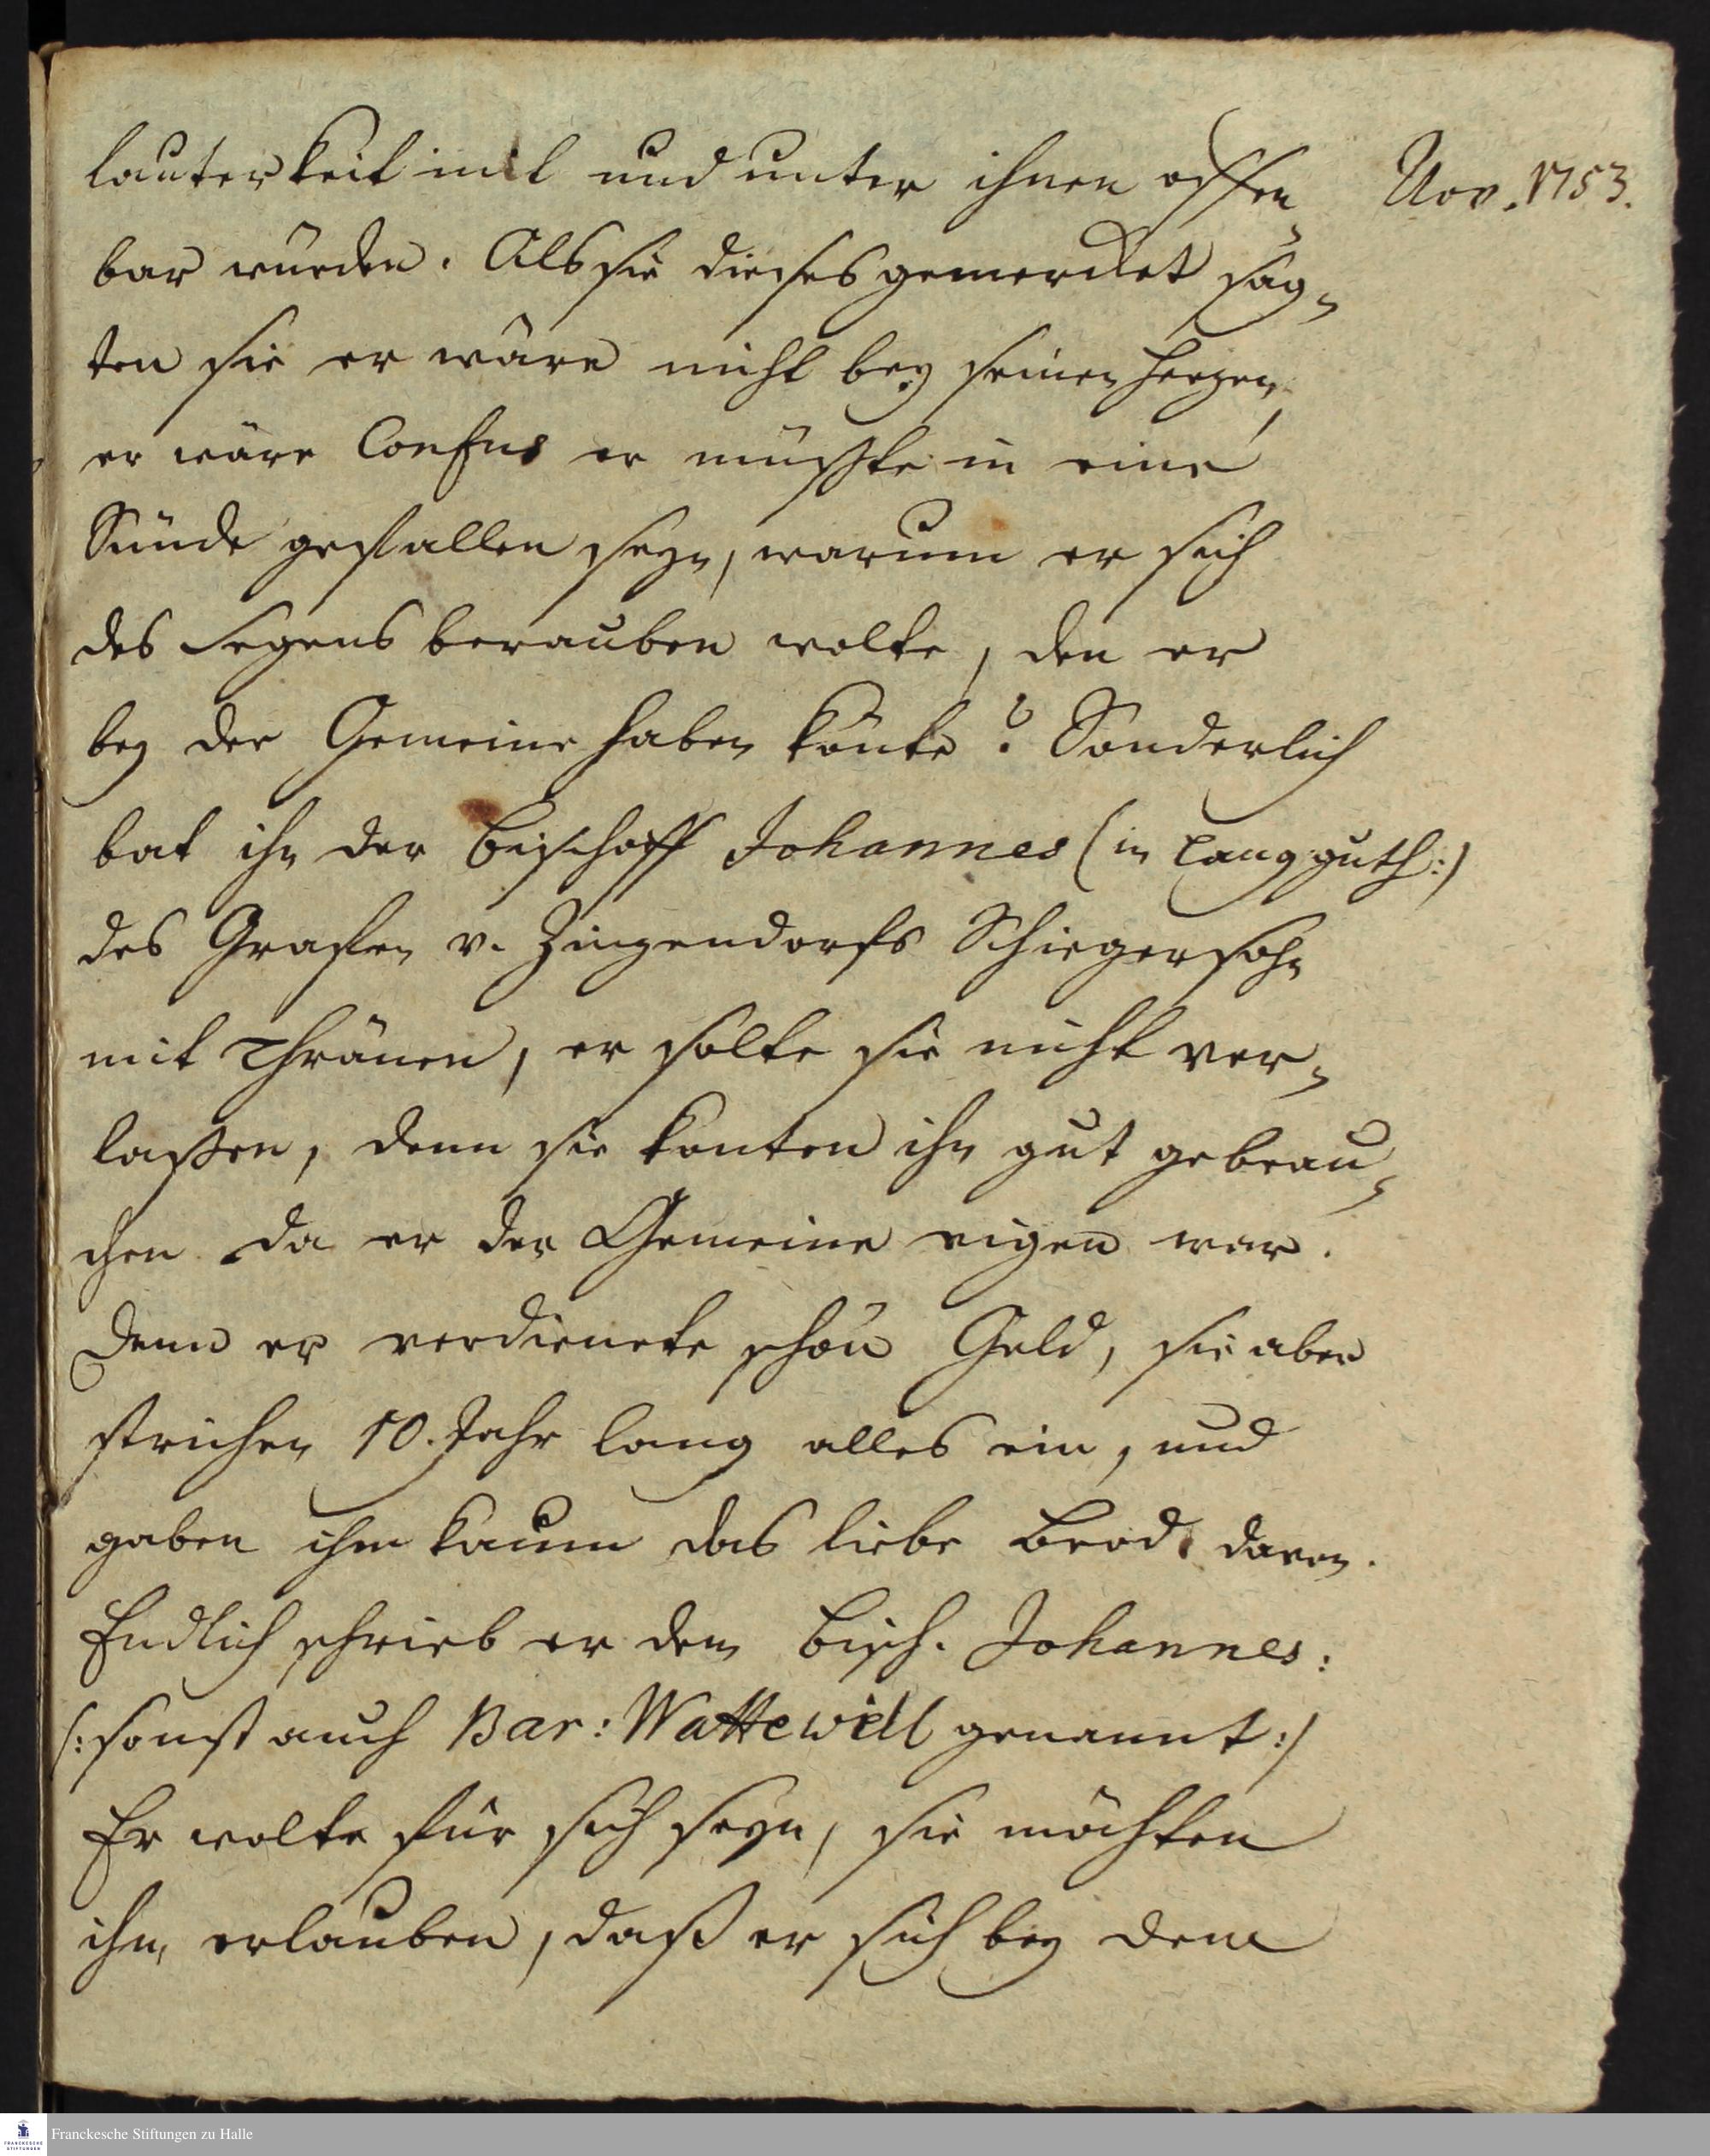 lauterkeit mit und unter ihnen offen- Nov. 1753.
bar würden. Als sie dieses gemercket sag-
ten sie er wäre nicht bey seinen Hertzen,
er wäre Confus er müsste in eine
Sünde gefallen seyn, warum er sich
des Segens berauben wolte, den er
bey der Gemeine haben könte? Sonderlich
bat ihn der Bischoff Johannes (in Langguth:)
des Grafen v. Zinzendorfs Schiegersohn
mit Thränen, er solte sie nicht ver-
laßen, denn sie konten ihn gut gebrau-
chen da er der Gemeine eigen war.
Denn er verdienete schön Geld, sie aber
strichen 10. Jahr lang alles ein, und
gaben ihm kaum das liebe Brod davon.
Endlich schrieb er dem Bisch. Johannes:
(: sonst auch Bar: Wattewill genannt:)
Er wolte für sich seyn, sie möchten
ihm erlauben, daß er sich bey dem
Franckesche Stiftungen zu Halle